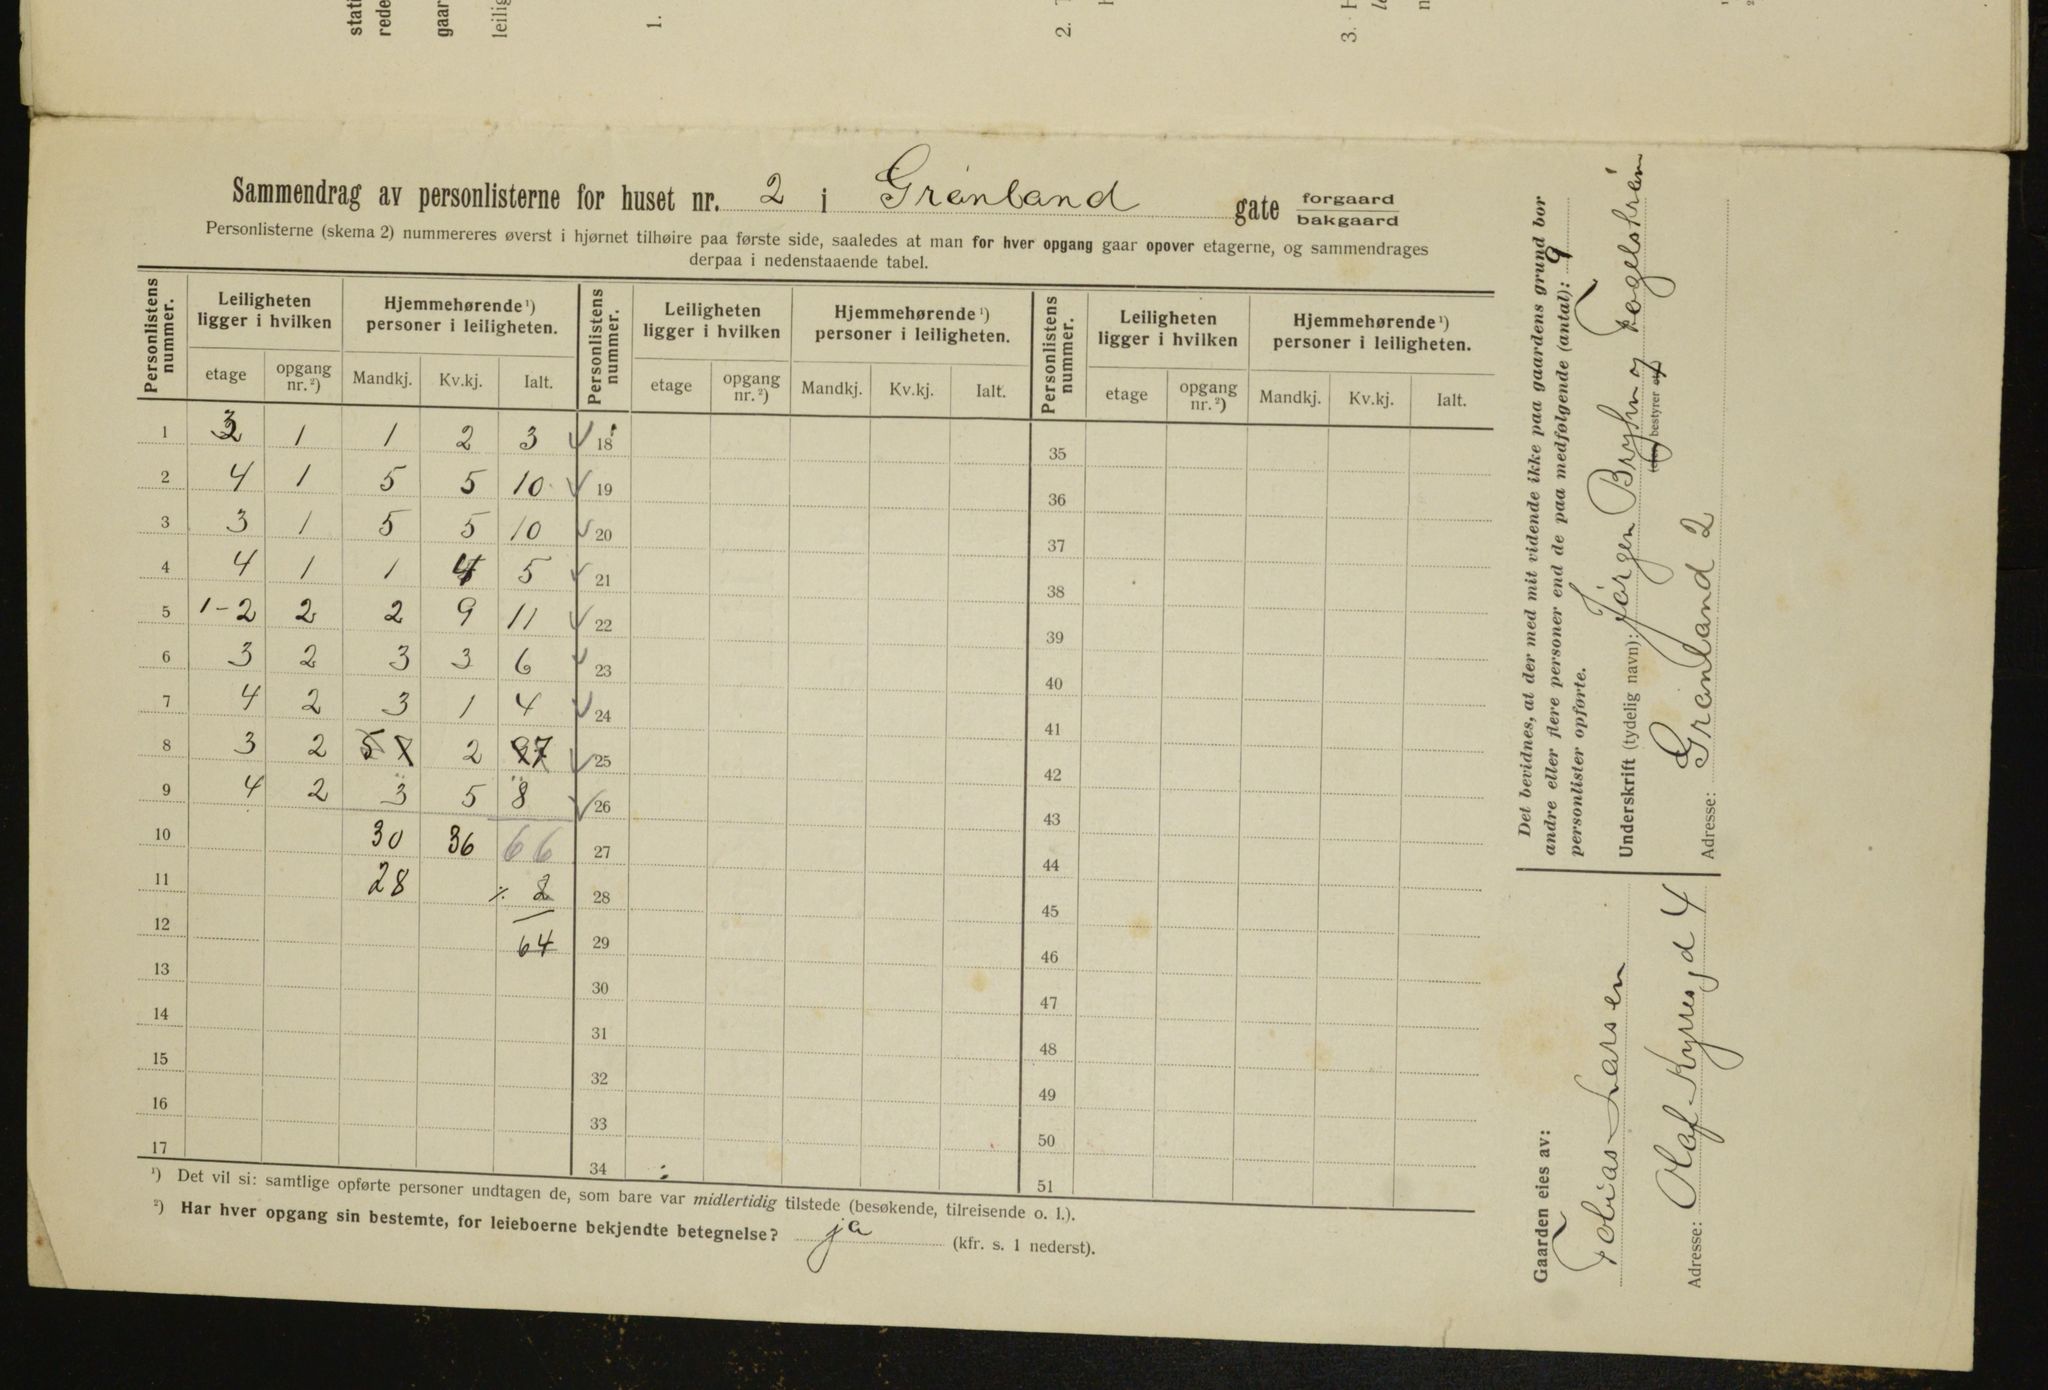 stati
rede
gaar
leilig
1.
2.
3.
Sammendrag av personlisterne for huset nr. 2 i Grønland gate forgaard bakgaard
Personlisterne (skema 2) nummereres øverst i hjørnet tilhøire paa første side, saaledes at man for hver opgang gaar opover etagerne, og sammendrages
derpaa i nedenstaaende tabel.
Personlistens nummer. Leiligheten ligger i hvilken Hjemmehørende¹) personer i leiligheten. Personlistens nummer. Leiligheten ligger i hvilken Hjemmehørende¹) personer i leiligheten. Personlistens nummer. Leiligheten ligger i hvilken Hjemmehørende¹) personer i leiligheten.
etage opgang nr.²) Mandkj. Kv.kj. Ialt. etage opgang nr.²) Mandkj. Kv.kj. Ialt. etage opgang nr.²) Mandkj. Kv.kj. Ialt.
1 3 1 1 2 3 ✓ 18 35
2 4 1 5 5 10 ✓ 19 36
3 3 1 5 5 10 ✓ 20 37
4 4 1 1 4 5 ✓ 21 38
5 1-2 2 2 9 11 ✓ 22 39
6 3 2 3 3 6 ✓ 23 40
7 4 2 3 1 4 ✓ 24 41
8 3 2 5 7 2 9 7 ✓ 25 42
9 4 2 3 5 8 ✓ 26 43
10 30 36 66 27 44
11 28 ⁒ 2 28 45
12 64 29 46
13 30 47
14 31 48
15 32 49
16 33 50
17 34 51
¹) Det vil si: samtlige opførte personer undtagen de, som bare var midlertidig tilstede (besøkende, tilreisende o. l.).
²) Har hver opgang sin bestemte, for leieboerne bekjendte betegnelse? ja (kfr. s. 1 nederst).
Det bevidnes, at der med mit vidende ikke paa gaardens grund bor
andre eller flere personer end de paa medfølgende (antal): 9
personlister opførte.
Underskrift (tydelig navn): Jørgen Bryhn og Fogelstrøm
bestyrer
Adresse: Grønland 2
Gaarden eies av:
Tobias Larsen
Adresse: Olaf Kyrres gd 4